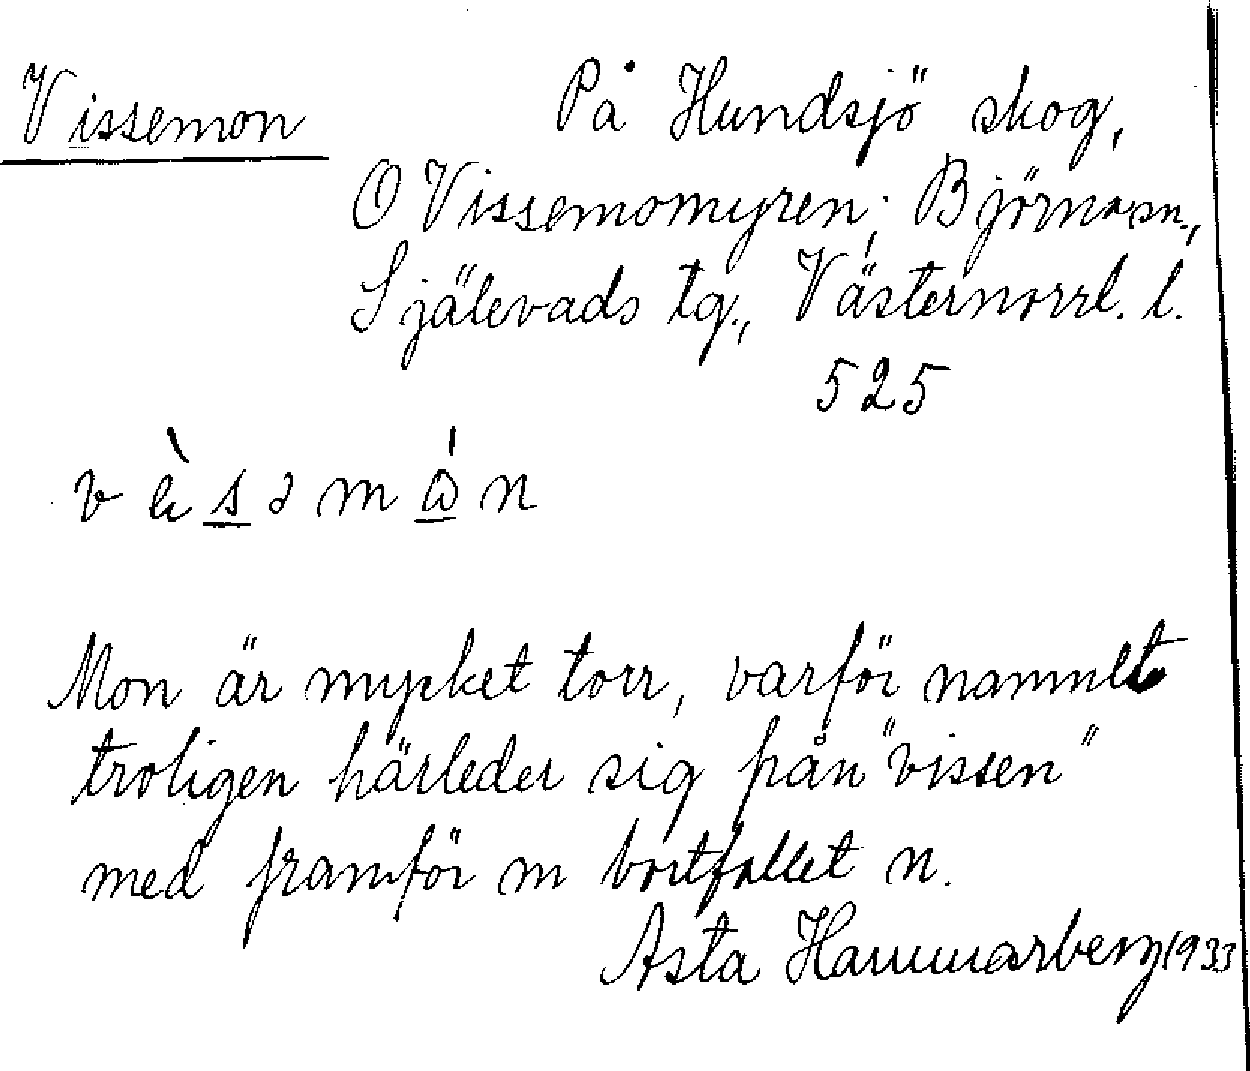 Vissemon
På Hundsjö skog,
O Vissemomyren; Björna sn.,
Själevads tg., Västernorrl. l.
525
Mon är mycket torr, varför namnet
troligen härleder sig från "vissen"
med framför m bortfallet n.
Asta Hammarberg 1933